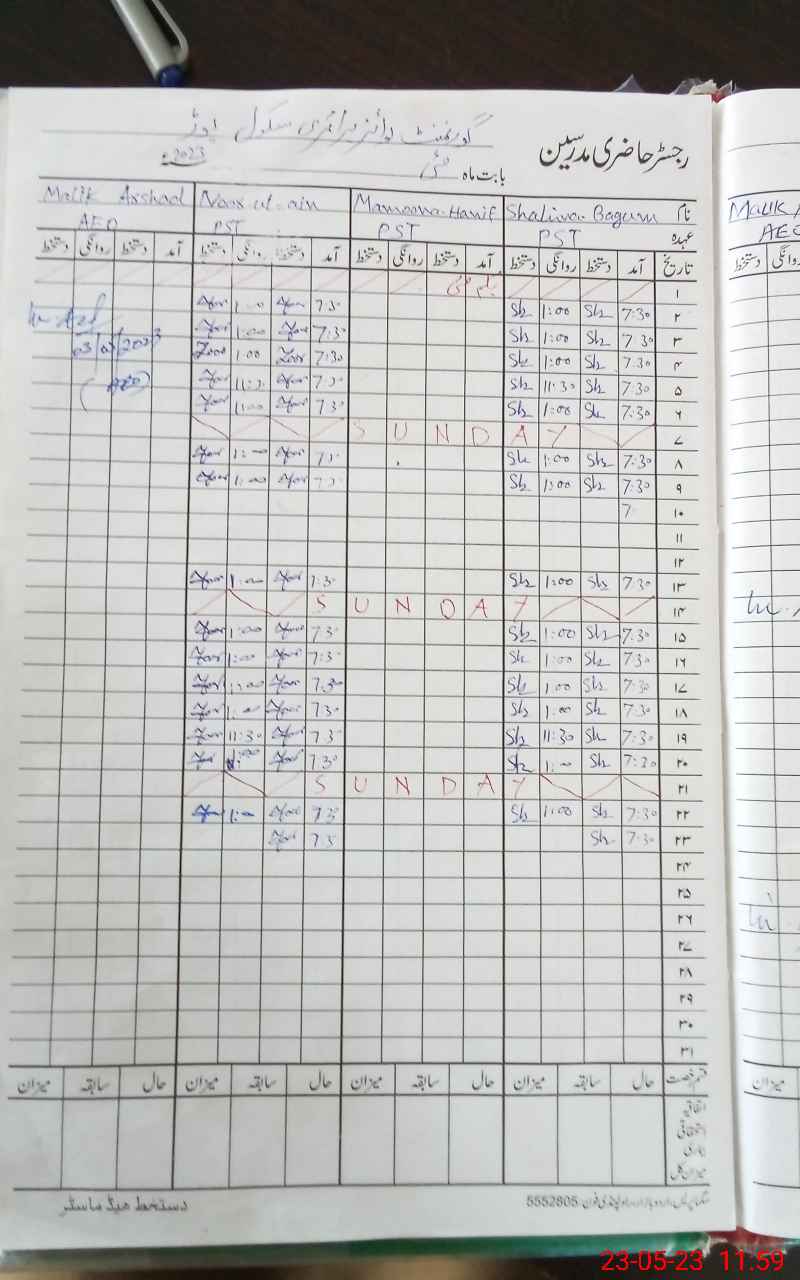 گورنمنٹ بوائز پرائمری سکول
رجسٹر حاضری مدرسین
بابت ماہ مئی 2023ء
نام Shaliwa Bagum Mamoona Hanif Noor ul ain Malik Arshad
عہدہ PST PST PST AEO
تاریخ آمد دستخط روانگی دستخط آمد دستخط روانگی دستخط آمد دستخط روانگی دستخط آمد دستخط روانگی دستخط
۱ یکم مئی
۲ 7:30 Sh 1:00 Sh 7:30 Noor 1:00 Noor
۳ 7:30 Sh 1:00 Sh 7:30 Noor 1:00 Noor
۴ 7:30 Sh 1:00 Sh 7:30 Noor 1:00 Noor 03/05/2023
۵ 7:30 Sh 11:30 Sh 7:30 Noor 11:30 Noor (AEO)
۶ 7:30 Sh 1:00 Sh 7:30 Noor 1:00 Noor
۷ SUNDAY
۸ 7:30 Sh 1:00 Sh 7:30 Noor 1:00 Noor
۹ 7:30 Sh 1:00 Sh 7:30 Noor 1:00 Noor
۱۰ 7:
۱۱
۱۲
۱۳ 7:30 Sh 1:00 Sh 7:30 Noor 1:00 Noor
۱۴ SUNDAY
۱۵ 7:30 Sh 1:00 Sh 7:30 Noor 1:00 Noor
۱۶ 7:30 Sh 1:00 Sh 7:30 Noor 1:00 Noor
۱۷ 7:30 Sh 1:00 Sh 7:30 Noor 1:00 Noor
۱۸ 7:30 Sh 1:00 Sh 7:30 Noor 1:00 Noor
۱۹ 7:30 Sh 11:30 Sh 7:30 Noor 11:30 Noor
۲۰ 7:30 Sh 1:00 Sh 7:30 Noor 1:00 Noor
۲۱ SUNDAY
۲۲ 7:30 Sh 1:00 Sh 7:30 Noor 1:00 Noor
۲۳ 7:30 Sh 7:30 Noor
۲۴
۲۵
۲۶
۲۷
۲۸
۲۹
۳۰
۳۱
قسم رخصت حال سابقہ میزان حال سابقہ میزان حال سابقہ میزان حال سابقہ میزان
اتفاقیہ
استحقاقی
بیماری
میزان کل
دستخط ھیڈ ماسٹر
5552805
MALIK
AEO
دستخط روانگی
میزان
23-05-23 11:59